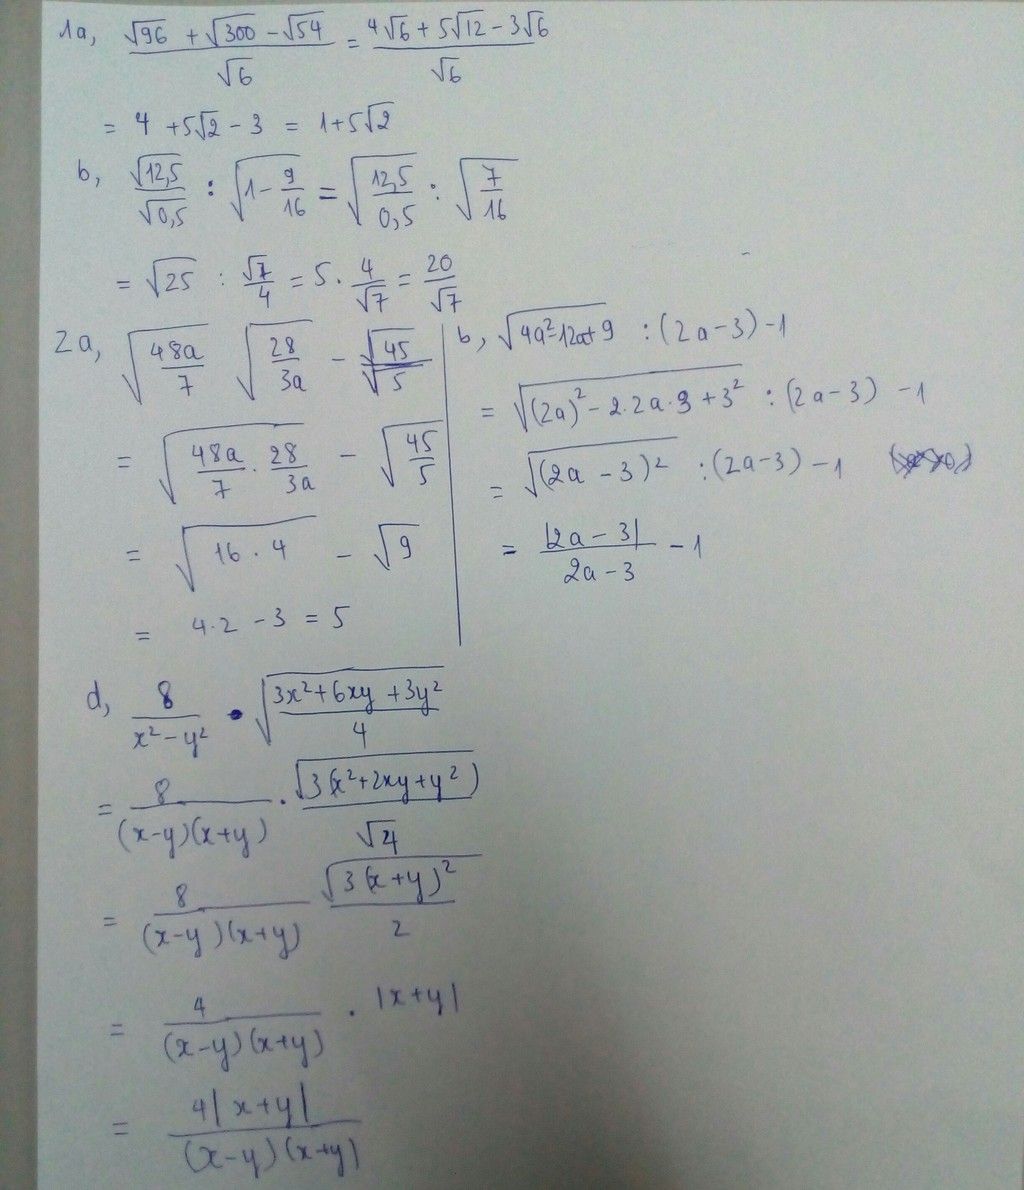 1a, (√96 + √300 - √54)/√6 = (4√6 + 5√12 - 3√6)/√6
= 4 + 5√2 - 3 = 1 + 5√2
b, √12,5/√0,5 : √(1 - 9/16) = √(12,5/0,5) : √(7/16)
= √25 : √7/4 = 5 · 4/√7 = 20/√7
2a, √(48a/7) √(28/3a) - √45/√5
= √(48a/7 · 28/3a) - √(45/5)
= √(16 · 4) - √9
= 4.2 - 3 = 5
b, √(4a² - 12a + 9) : (2a - 3) - 1
= √((2a)² - 2.2a.3 + 3²) : (2a - 3) - 1
= √((2a - 3)²) : (2a - 3) - 1
= |2a - 3|/(2a - 3) - 1
d, 8/(x² - y²) · √((3x² + 6xy + 3y²)/4)
= 8/((x-y)(x+y)) · √(3(x² + 2xy + y²))/√4
= 8/((x-y)(x+y)) √(3(x+y)²)/2
= 4/((x-y)(x+y)) · |x+y|
= 4|x+y|/((x-y)(x+y))